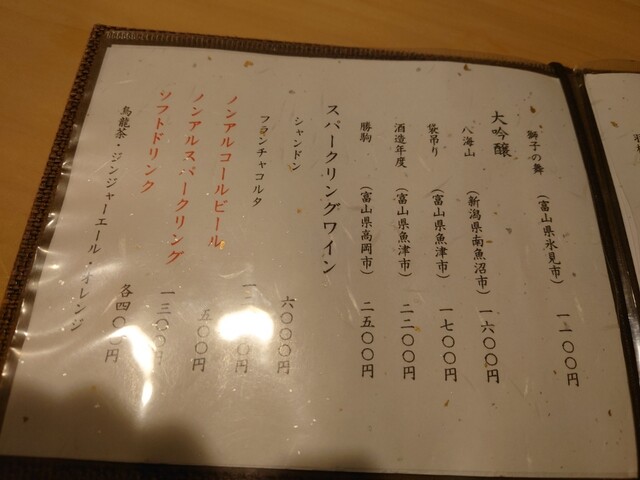 獅子の舞 (富山県氷見市) 一二〇〇円
大吟醸
八海山 (新潟県南魚沼市) 一六〇〇円
袋吊り (富山県魚津市) 一七〇〇円
酒造年度 (富山県魚津市) 二二〇〇円
勝駒 (富山県高岡市) 二五〇〇円
スパークリングワイン
シャンドン 六〇〇〇円
フランチャコルタ
ノンアルコールビール 五〇〇円
ノンアルスパークリング 一三〇〇円
ソフトドリンク
烏龍茶・ジンジャーエール・オレンジ 各四〇〇円